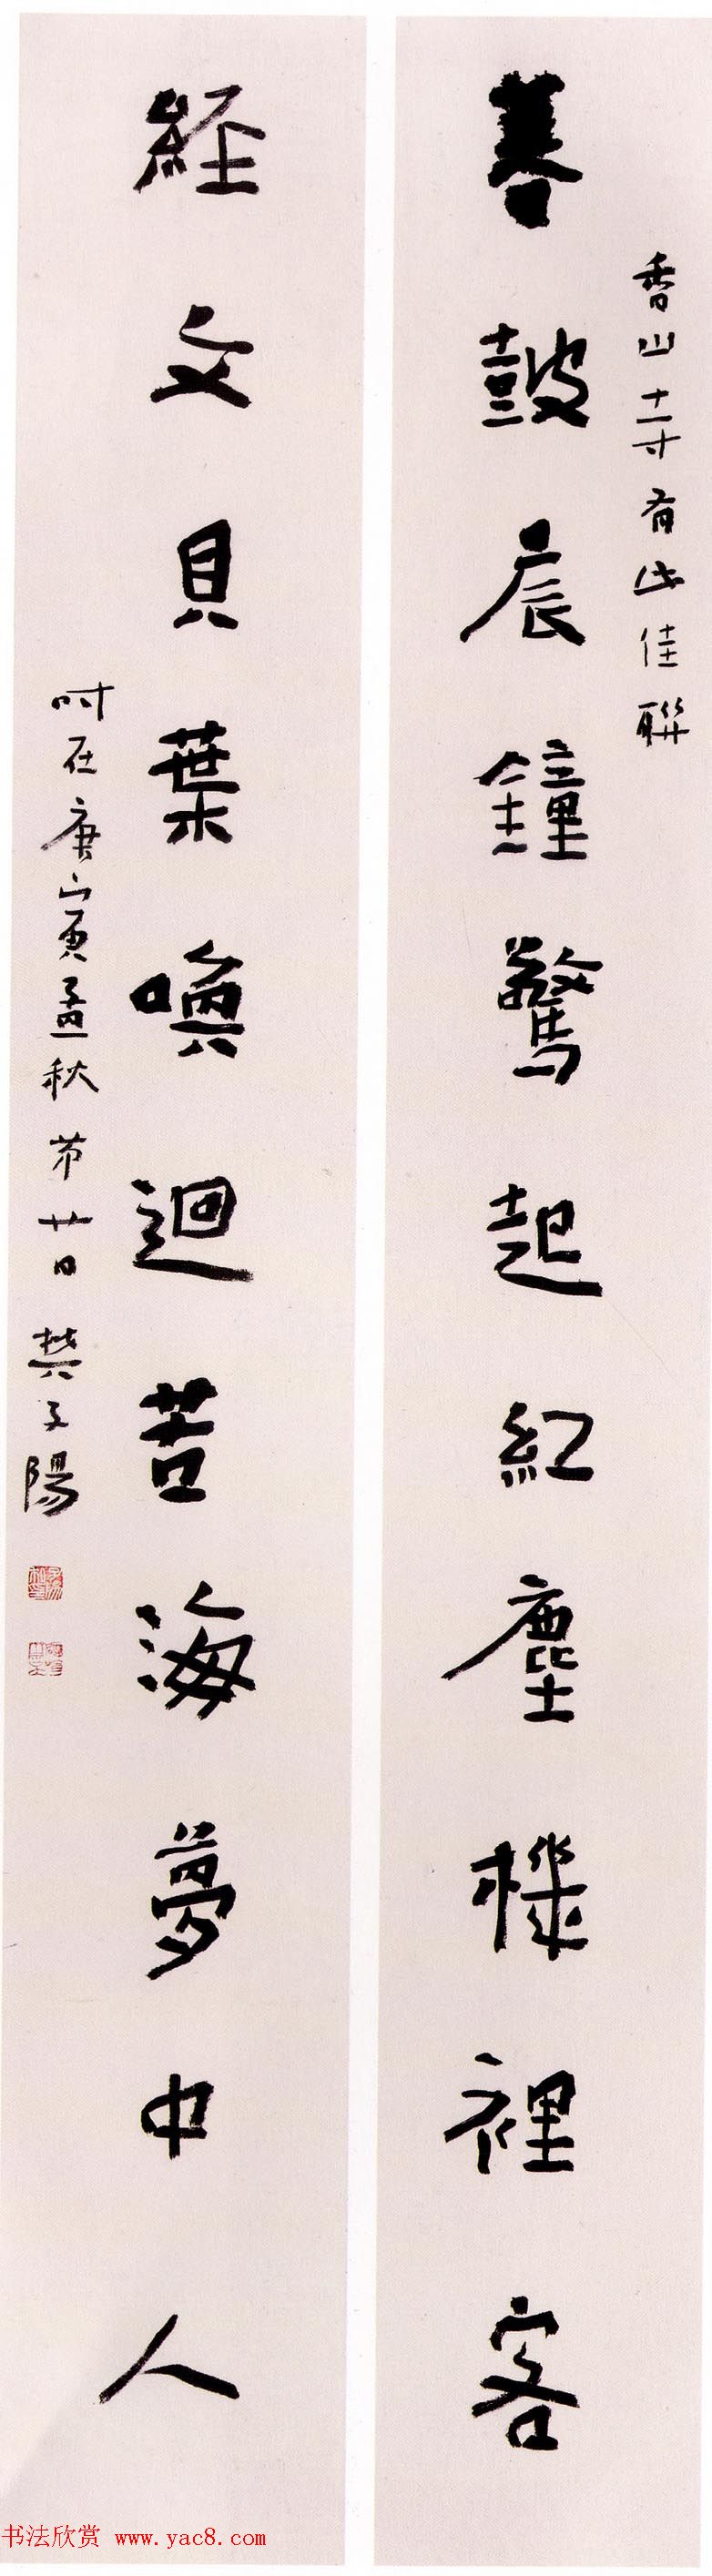 暮鼓辰鐘驚起紅塵機裡客
香山十一寺有此佳聯
經文貝葉喚迴苦海夢中人
时在庚寅孟秋苐廿日樊子陽
书法欣赏 www.yac8.com